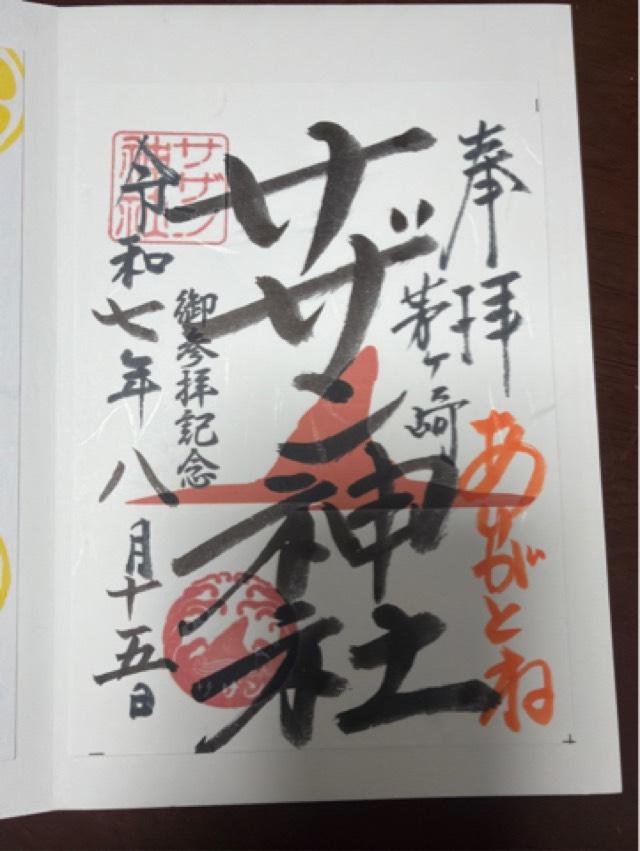 奉拝
茅ヶ崎
ありがとね
サザン神社
御参拝記念
令和七年八月十五日
サザン
神社
サザン